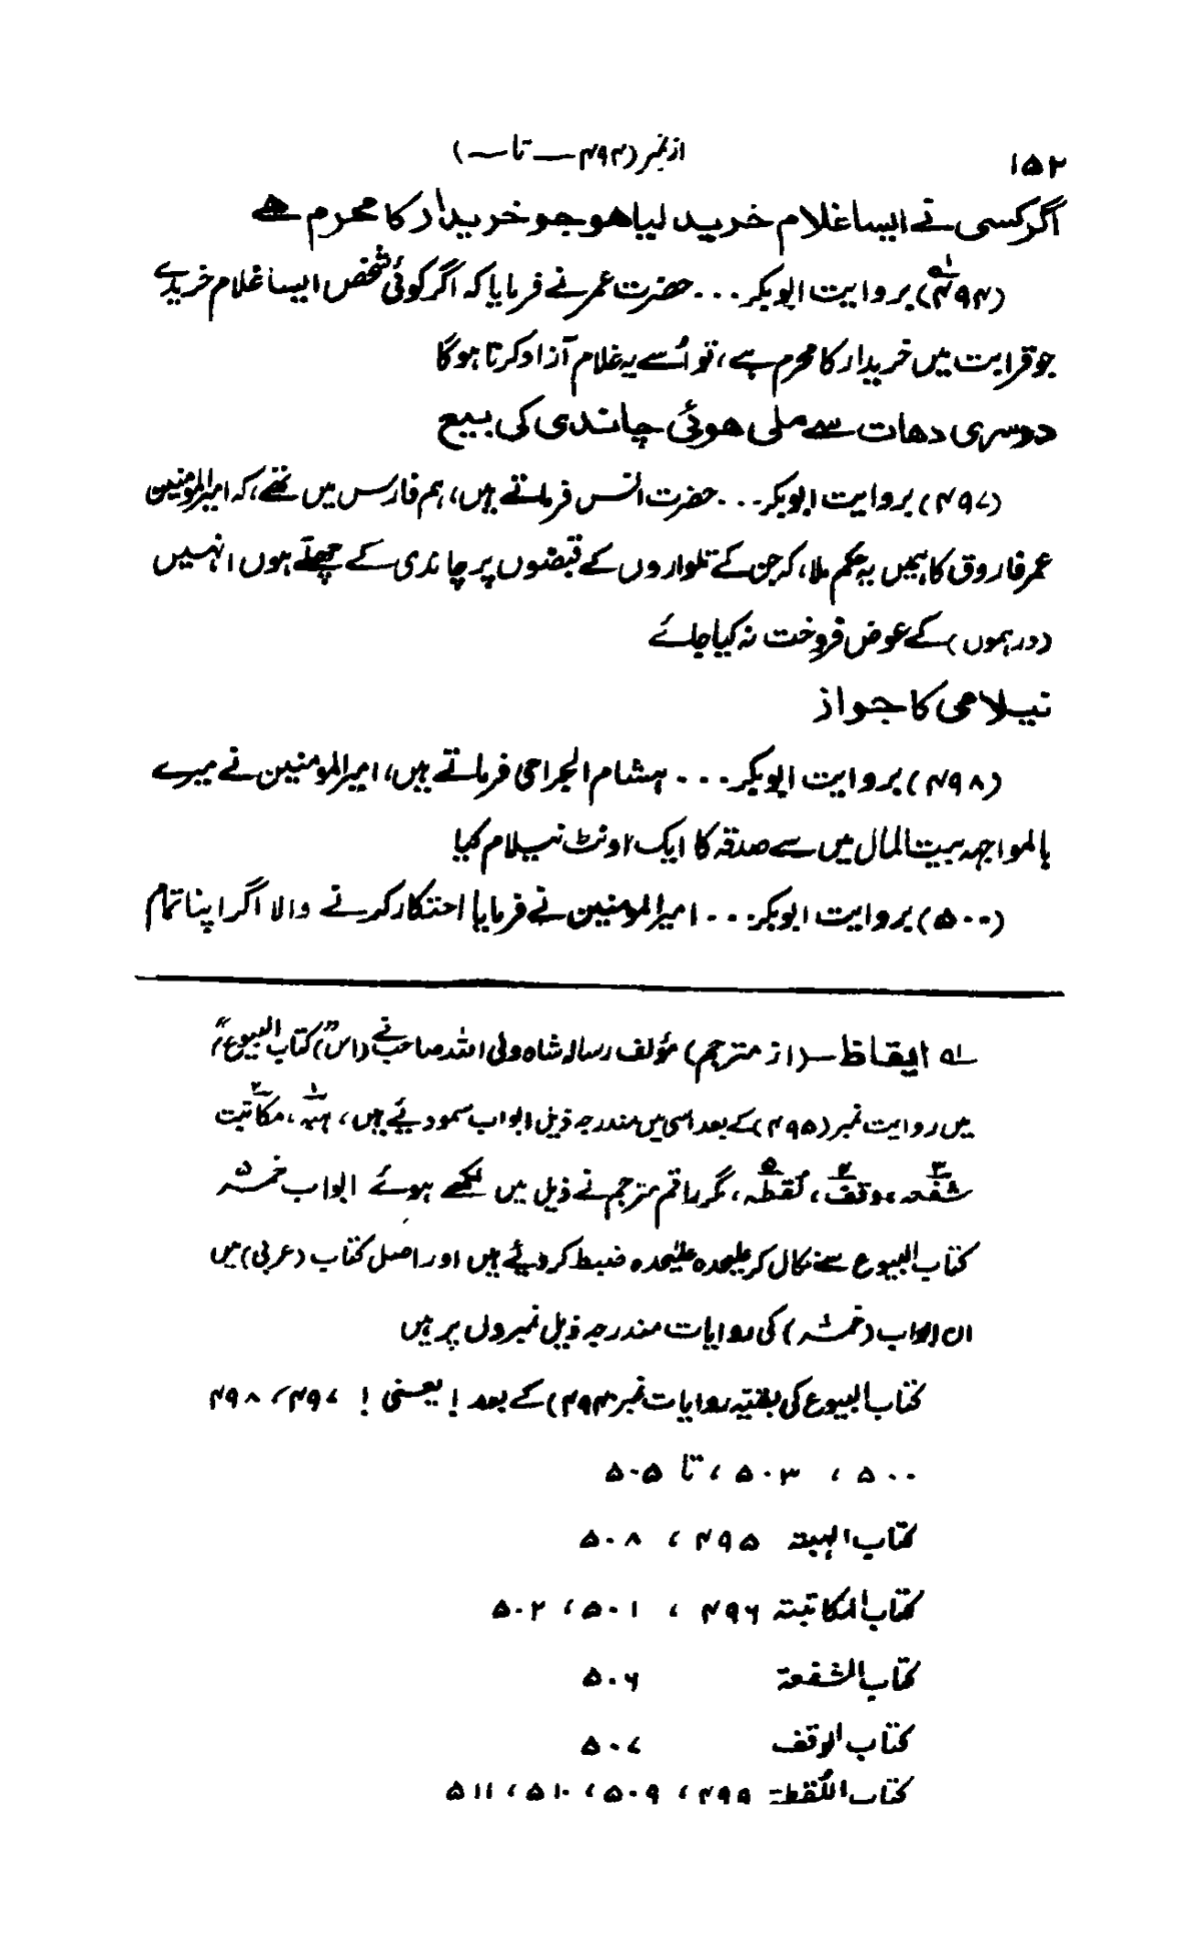 ۱۵۲
از نمبر (۴۹۴ — تا —)
اگر کسی نے ایسا غلام خرید لیا ہو جو خریدار کا محرم ہے
(۴۹۴)؎۱ بروایت ابوبکر ... حضرت عمر نے فرمایا کہ اگر کوئی شخص ایسا غلام خریدے
جو قرابت میں خریدار کا محرم ہے، تو اُسے یہ غلام آزاد کرنا ہوگا
دوسری دھات سے ملی ہوئی چاندی کی بیع
(۴۹۷) بروایت ابوبکر ... حضرت انس فرماتے ہیں، ہم فارس میں تھے، کہ امیرالمؤمنین
عمر فاروق کا ہمیں یہ حکم ملا، کہ جن کے تلواروں کے قبضوں پر چاندی کے چھلّے ہوں انہیں
(درہموں) کے عوض فروخت نہ کیا جائے
نیلامی کا جواز
(۴۹۸) بروایت ابوبکر ... ہشام الجراحی فرماتے ہیں، امیرالمومنین نے میرے
بالمواجہہ بیت المال میں سے صدقہ کا ایک اونٹ نیلام کیا
(۵۰۰) بروایت ابوبکر ... امیرالمومنین نے فرمایا احتکار کرنے والا اگر اپنا تمام
؎۱ ایقاظ — (از مترجم) مؤلف رسالہ شاہ ولی اللہ صاحب نے (اس) "کتاب البیوع"
میں روایت نمبر (۴۹۵) کے بعد اسی میں مندرجہ ذیل ابواب سمو دیئے ہیں، ہبہ۱، مکاتبت۲
شفعہ۳، وقف۴، لُقطہ۵، مگر راقم مترجم نے ذیل میں لکھے ہوئے ابواب خمسہ
کتاب البیوع سے نکال کر علیحدہ علیحدہ ضبط کر دیئے ہیں اور اصل کتاب (عربی) میں
ان ابواب (خمسہ) کی روایات مندرجہ ذیل نمبروں پر ہیں
کتاب البیوع کی بقیہ روایات نمبر ۴۹۴) کے بعد! یعنی! ۴۹۷، ۴۹۸
۵۰۰، ۵۰۳، تا ۵۰۵
کتاب الہبتہ ۴۹۵، ۵۰۸
کتاب المکاتبتہ ۴۹۶، ۵۰۱، ۵۰۲
کتاب الشفعۃ ۵۰۶
کتاب الوقف ۵۰۷
کتاب اللُقطۃ ۴۹۹، ۵۰۹، ۵۱۰، ۵۱۱